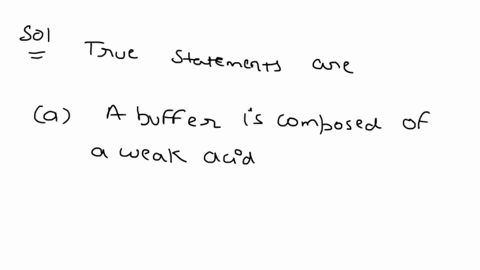 Sol
True statements are
(a) A buffer is composed of
a weak acid